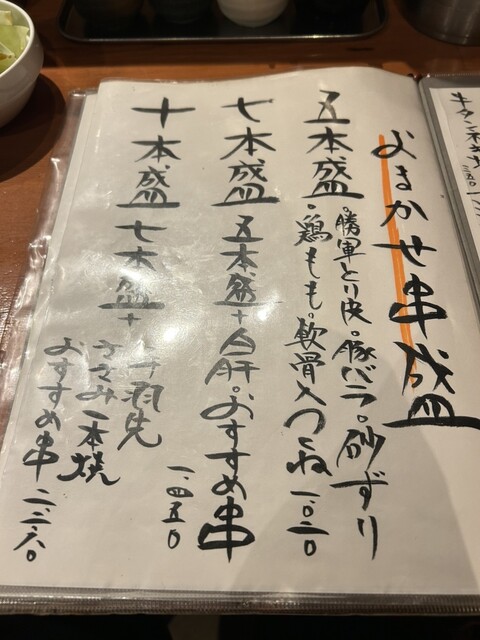 おまかせ串盛
五本盛
・勝軍とり皮・豚バラ・砂ずり
・鶏もも・軟骨入つくね 一、〇二〇
七本盛
五本盛+白肝・おすすめ串
一、四五〇
十本盛
七本盛+
手羽先
ささみ一本焼
おすすめ串 二、二六〇